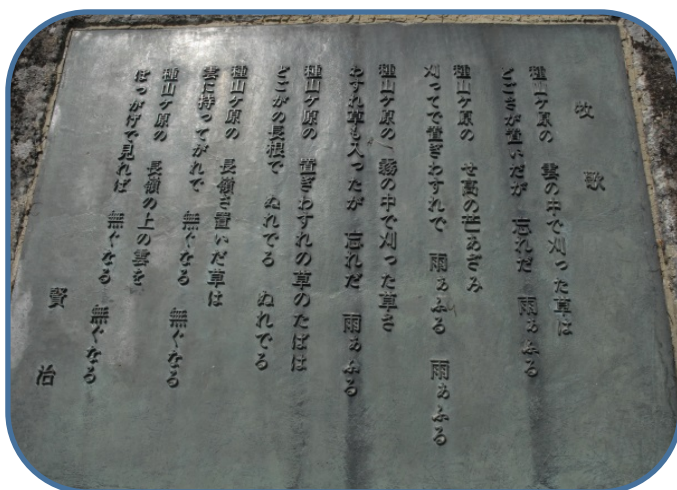 牧歌
種山ケ原の 雲の中で刈った草は
どごさが置いだが 忘れだ 雨ぁふる
種山ケ原の せ高の芒あざみ
刈ってで置ぎわすれで 雨ぁふる 雨ぁふる
種山ケ原の 霧の中で刈った草さ
わすれ草も入ったが 忘れだ 雨ぁふる
種山ケ原の 置ぎわすれの草のたばは
どごがの長根で ぬれでる ぬれでる
種山ケ原の 長嶺さ置いだ草は
雲に持ってがれで 無ぐなる 無ぐなる
種山ケ原の 長嶺の上の雲を
ぼっがげで見れば 無ぐなる 無ぐなる
賢治